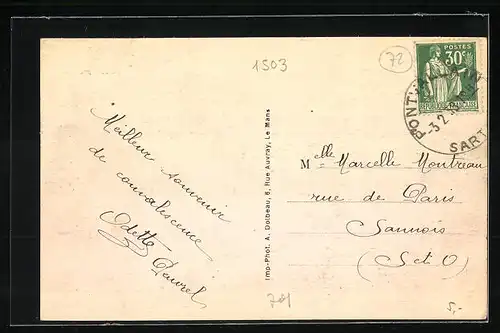 1503
72
POSTES
30c
PONTVALLAIN
-3.2
SART
Meilleur souvenir
de convalescence
Odette
Imp-Phot. A. Dolbeau, 6, Rue Auvray, Le Mans
Melle Marcelle Montreau
rue de Paris
Sannois
(S et O)
5,-